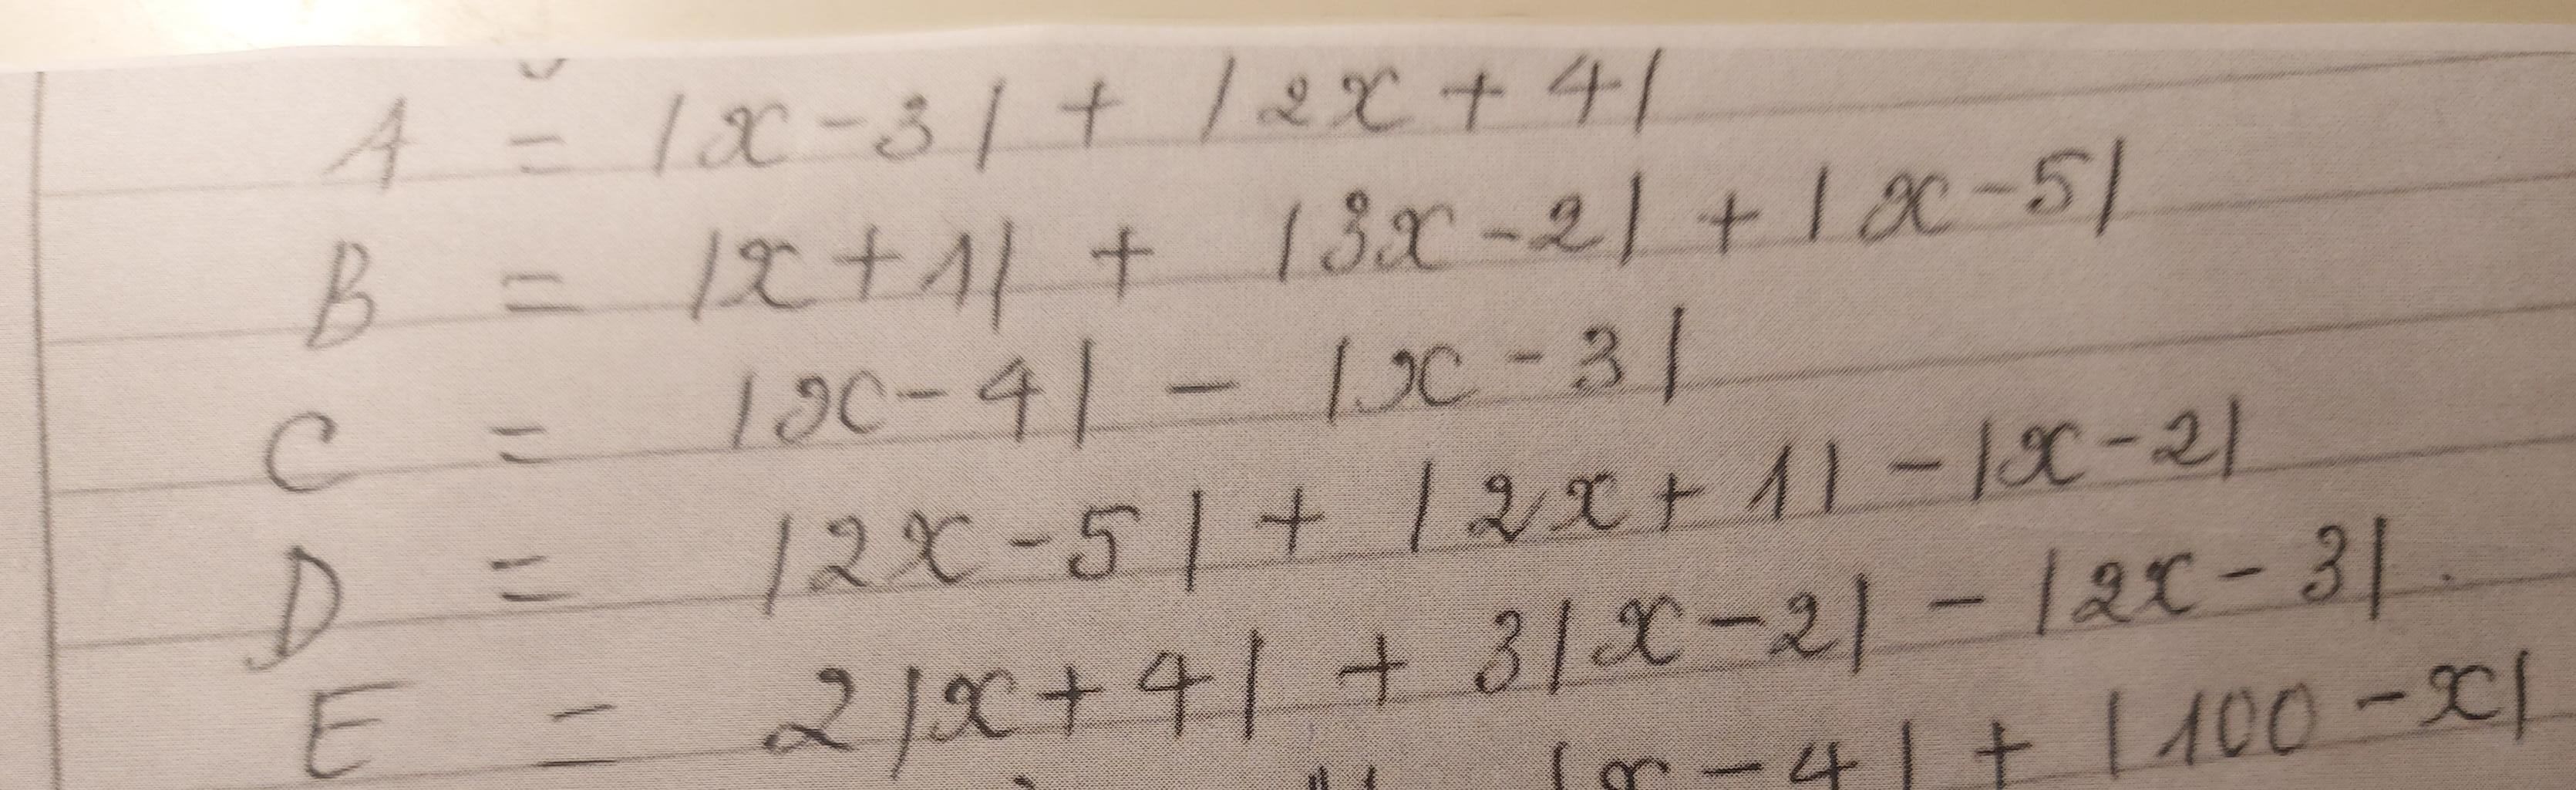 A = |x-3| + |2x+4|
B = |x+1| + |3x-2| + |x-5|
C = |x-4| - |x-3|
D = |2x-5| + |2x+1| - |x-2|
E = 2|x+4| + 3|x-2| - |2x-3|.
|x-4| + |100-x|